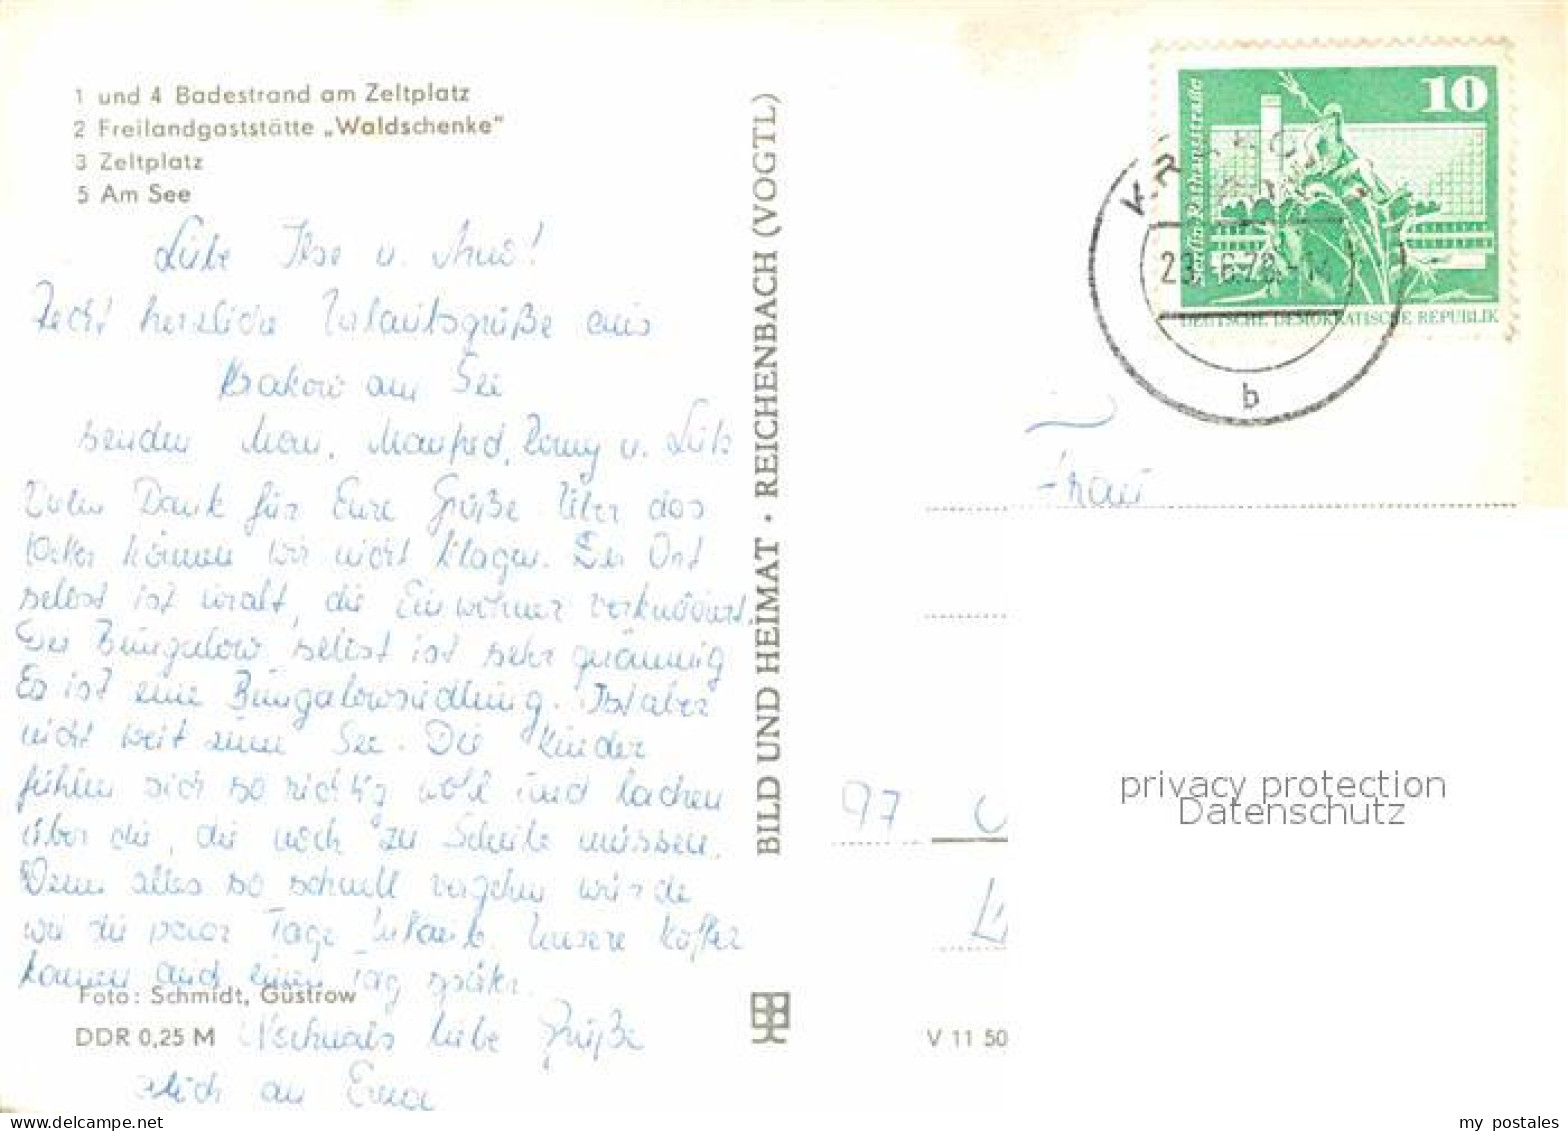 1 und 4 Badestrand am Zeltplatz
2 Freilandgaststätte „Waldschenke"
3 Zeltplatz
5 Am See
Liebe Ilse u. Arno!
Recht herzliche Urlaubsgrüße aus
Krakow am See
senden Marl. Manfred, Romy u.
Vielen Dank für Eure Grüße. Über das
können wir nicht klagen. Der Ort
selbst ist uralt, die Einwohner
Der Bungalow selbst ist sehr geräumig
Es ist eine Bungalowsiedlung. Ist aber
nicht weit zum See. Die Kinder
fühlen sich so richtig wohl und lachen
über die, die noch zur Schule müssen.
Wenn alles so schnell vergehen würde
wie die paar Tage Urlaub. Unsere Koffer
kamen auch einen Tag später.
Nochmals liebe Grüße
auch an Erna
Foto: Schmidt, Güstrow
DDR 0,25 M
BILD UND HEIMAT · REICHENBACH (VOGTL)
V 11 50
10
Berlin, Rathausstraße
DEUTSCHE DEMOKRATISCHE REPUBLIK
KRAKOW
b
Frau
97
privacy protection
Datenschutz
my postales